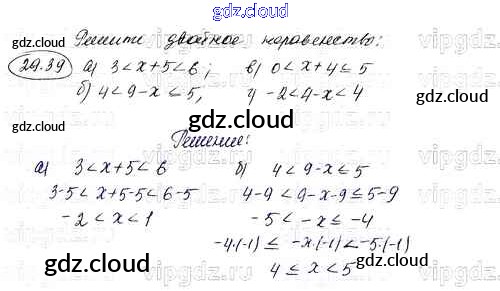 gdz.cloud
Решите двойное неравенство:
gdz.cloud gdz.cloud
29.39 а) 3 < x+5 < 6; в) 0 < x+4 ≤ 5
б) 4 < 9-x ≤ 5, г) -2 < 4-x < 4
gdz.cloud gdz.cloud
Решение:
gdz.cloud
а) 3 < x+5 < 6 б) 4 < 9-x ≤ 5
3-5 < x+5-5 < 6-5 4-9 < 9-x-9 ≤ 5-9
-2 < x < 1 -5 < -x ≤ -4
-4·(-1) ≤ -x·(-1) < -5·(-1)
gdz.cloud gdz.cloud
4 ≤ x < 5
gdz.cloud